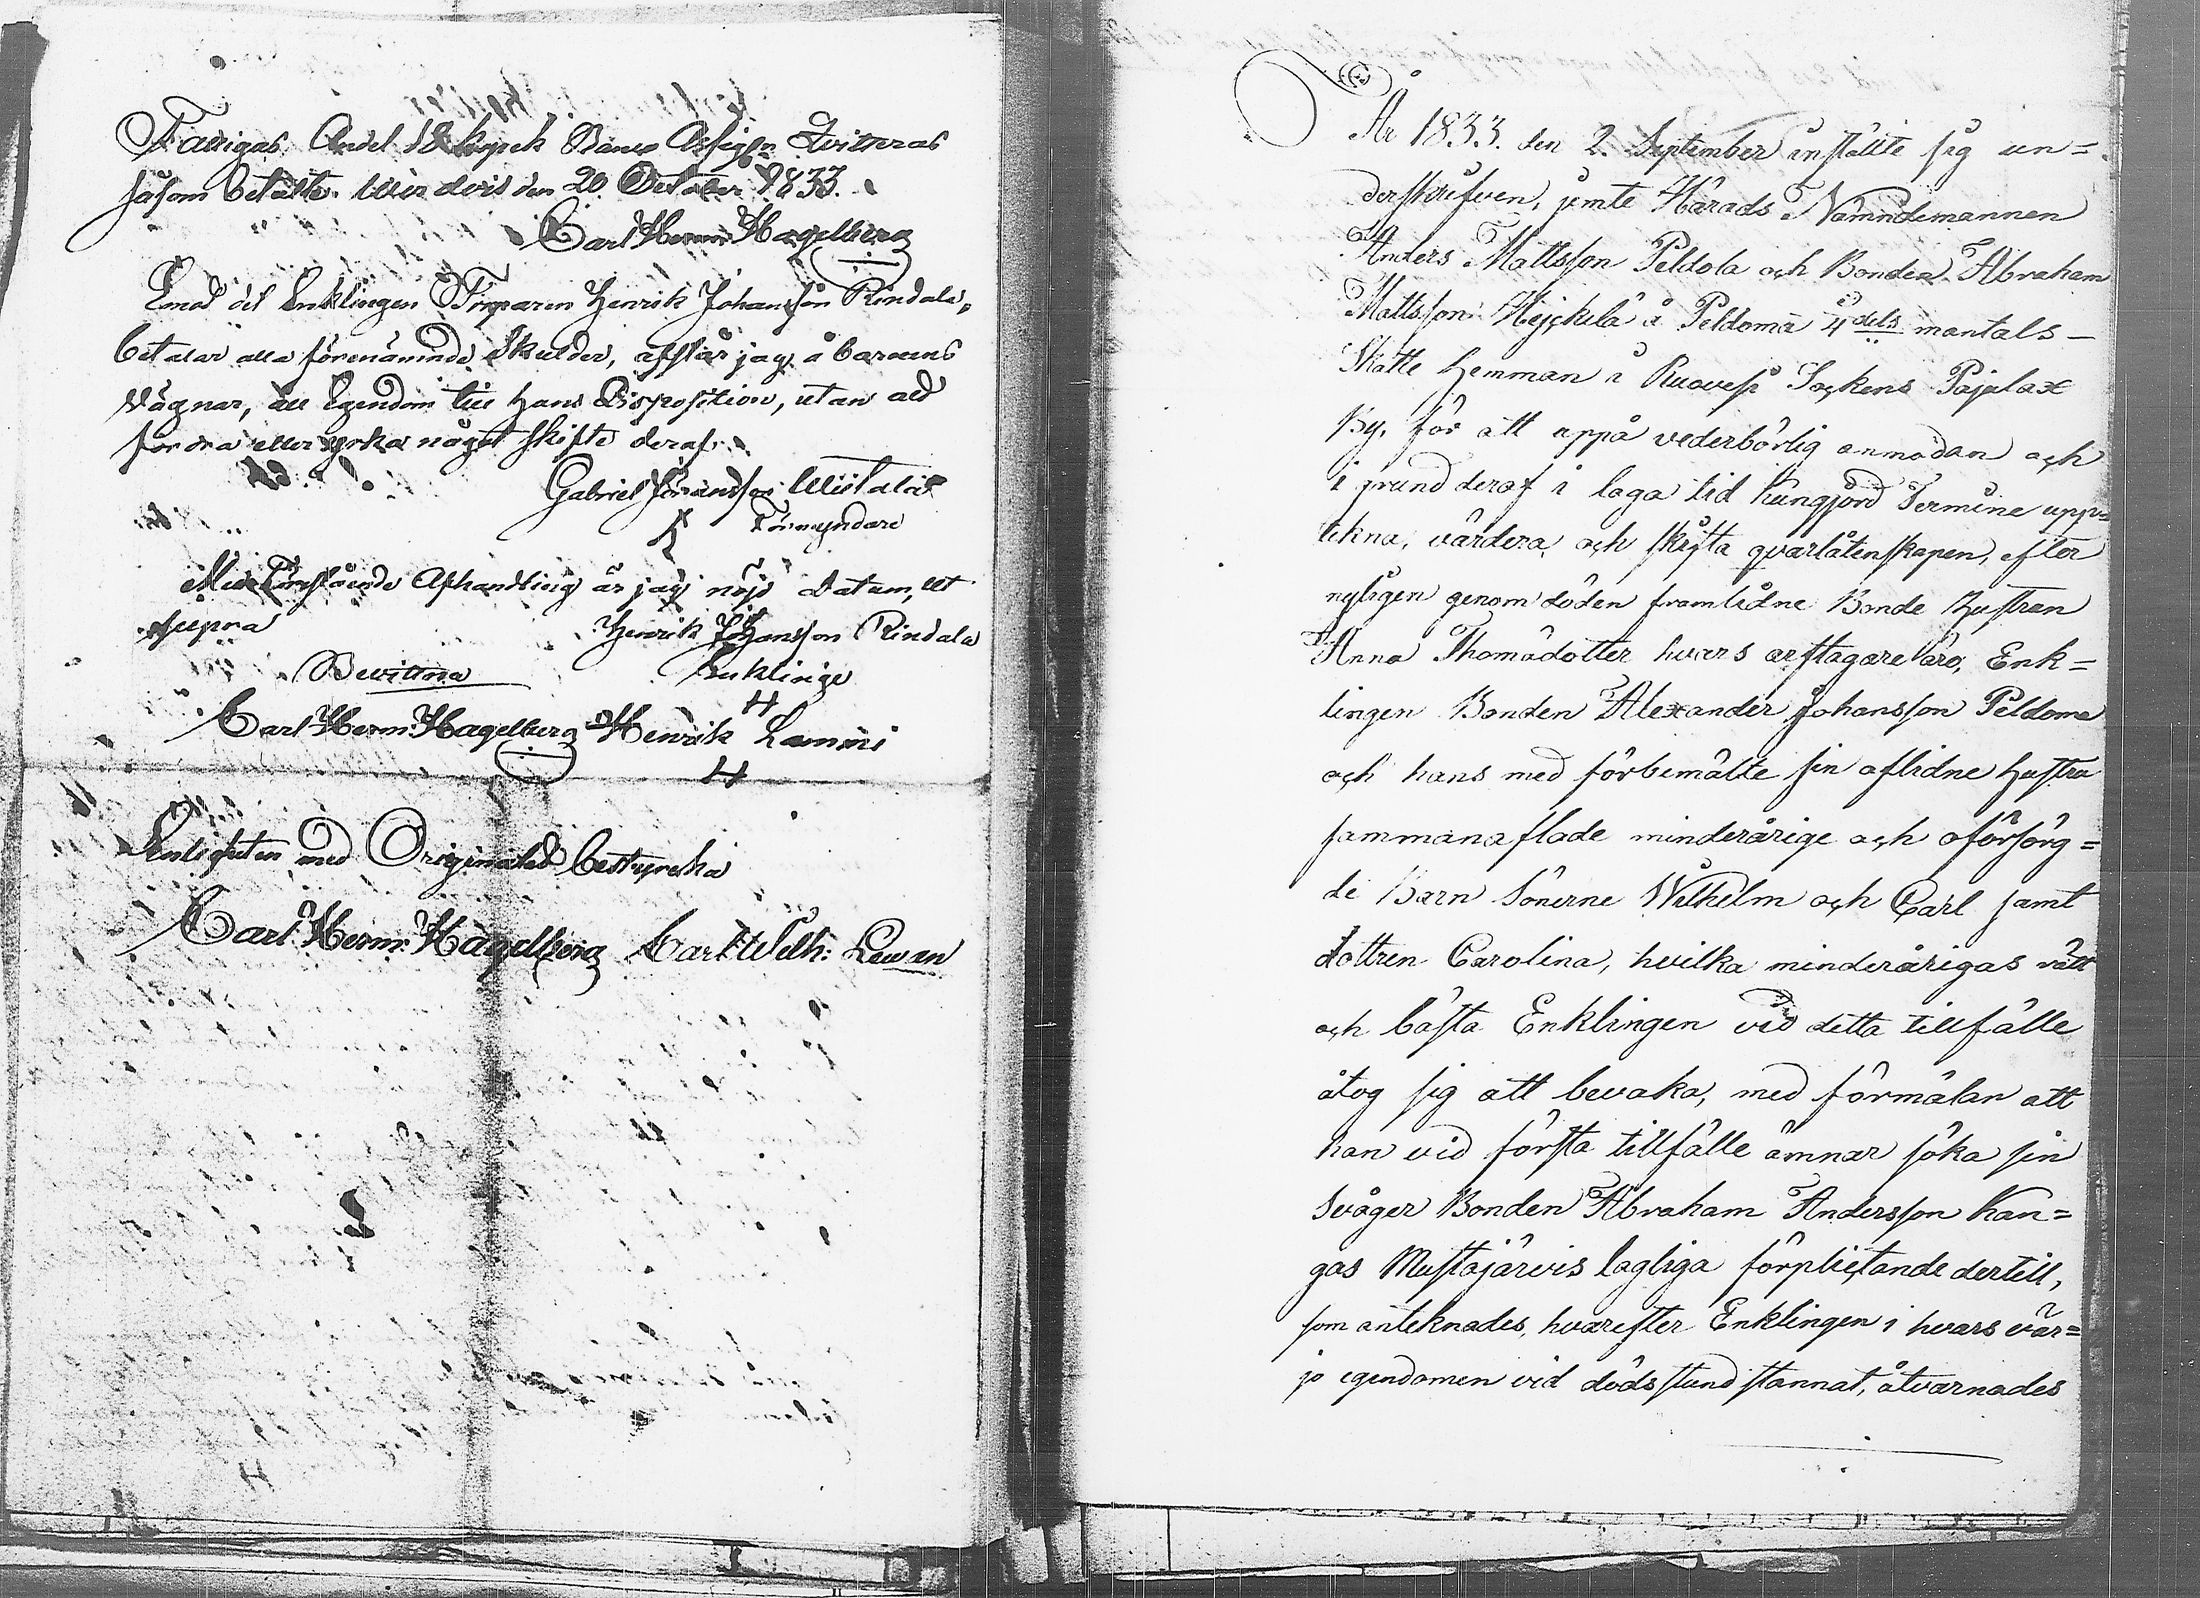 Fattigas Andel 18 kopek Banco Assign Qvitteras
såsom betalte. den 20 October 1833.
Carl Herm: Hagelberg
Emot det Enklingen Torparen Henrik Johansson Rindala,
betalar alla förenämnde Skulder, afstår jag å barnens
vägnar, all Egendom till hans Disposition, utan att
fordra eller yrka något skifte deraf.
Gabriel
Förmyndare
Med Förestående Afhandling är jag nöjd Datum, ut
supra Henrik Johansson Rindala
Enklinge
Bevittna
Carl Herm: Hagelberg Henrik Lammi
Enligheten med Originalet bestyrcka
Carl Herm: Hagelberg Carl Wilh: Lewan
År 1833. den 2. September instälte sig un=
derskrifven, jemte Härads Nämndemannen
Anders Mattsson Peldola och Bonden Abraham
Mattsson Heickilä å Peldoma 4dels mantals
Skatte Hemman i Ruovesi Sockens Pajulax
By, för att uppå vederbörlig anmodan och
i grund deraf i laga tid kungjord Termine upp=
tekna, värdera och skifta qvarlåtenskapen, efter
nyligen genom döden framlidne Bonde Hustrun
Anna Thomædotter hvars arftagare äro, Enk=
lingen Bonden Alexander Johansson Peldoma
och hans med förbemälte sin aflidne hustru
sammanaflade minderårige och oförsörg=
de Barn Sönerne Wilhelm och Carl samt
dottren Carolina, hvilka minderårigas rätt
och bästa Enklingen vid detta tillfälle
åtog sig att bevaka, med förmälan att
han vid första tillfälle ämnar söka sin
Svåger Bonden Abraham Andersson Kan=
gas Mustajärvis lagliga förplictande dertill,
som anteknades, hvarefter Enklingen i hvars vär=
jo egendomen vid dödsstund stannat, åtvarnades